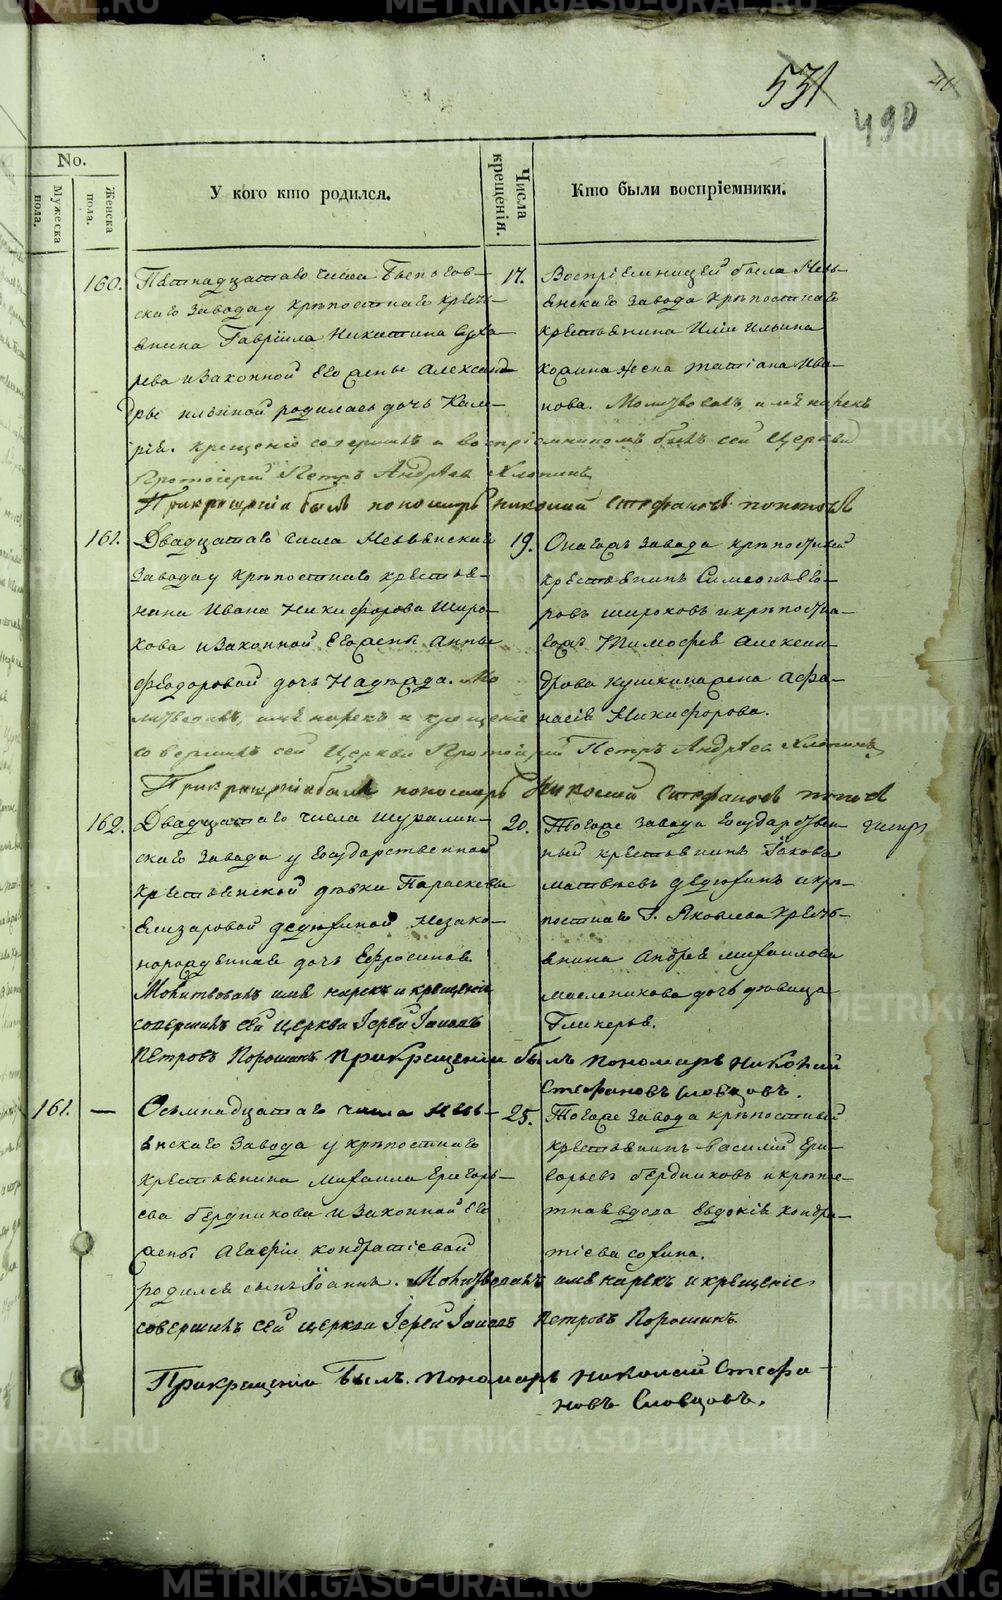 531
490
No.
Мужеска пола.
Женска пола.
У кого кто родился.
Числа крещенія.
Кто были воспріемники.
160.
Пятнадцатаго числа
скаго завода у крѣпостнаго кресть-
янина Гавріила Никитина Суха
рева и законной его жены Александ
ры родилась дочь
крещеніе совершилъ и воспріемникомъ былъ сей Церкви
Протоіерей Петръ Андреевъ Хлопинъ
При крещеніи былъ пономарь Николай Стефановъ
17.
Воспріемницей была Невь-
янскаго завода крѣпостнаго
крестьянина Иліи Ильина
жена Татіана Ива
нова. Молитвовалъ, имя нарекъ
161.
Двадцатаго числа Невьянскаго
завода у крѣпостнаго крестья-
нина Ивана Никифорова Широ-
кова и законной его жены Анны
Феодоровой дочь Надежда. Мо
литвовалъ, имя нарекъ и крещеніе
совершилъ сей Церкви Протоіерей Петръ Андреевъ Хлопинъ
При крещеніи былъ пономарь Николай Стефановъ
19.
Онагожъ завода крѣпостный
крестьянинъ Симеонъ Его-
ровъ Широковъ и крѣпостна-
гожъ Тимофея Алексан-
дрова Кушкина жена Афа-
насія Никифорова.
162.
Двадцатаго числа Шуралин-
скаго завода у государственной
крестьянской дѣвки Параскевы
Елизаровой Дедюхиной незако-
норожденная дочь Ефросинія
Молитвовалъ имя нарекъ и крещеніе
совершилъ сей церкви Іерей Іоаннъ
Петровъ Порошинъ При крещеніи былъ пономарь Николай
Стефановъ Словцовъ.
20.
Тогоже завода государствен-
ный крестьянинъ Іаковъ
Матвѣевъ Дедюхинъ и крѣ-
постнаго Г. Яковлева кресть-
янина Андрея Михаилова
Масленикова дочь дѣвица
Гликерья.
161.
—
Осьмнадцатаго числа Невь-
янскаго завода у крѣпостнаго
крестьянина Михаила Григорь-
ева Бердникова и законной его
жены Агафіи Кондратіевой
родился сынъ Іоаннъ. Молитвовалъ имя нарекъ и крещеніе
совершилъ сей церкви Іерей Іоаннъ Петровъ Порошинъ.
При крещеніи былъ пономарь Николай Стефа-
новъ Словцовъ.
25.
Тогоже завода крѣпостный
крестьянинъ Василій Гри-
горьевъ Бердниковъ и крѣпос-
тная вдова Евдокія Кондра-
тіева
METRIKI.GASO-URAL.RU